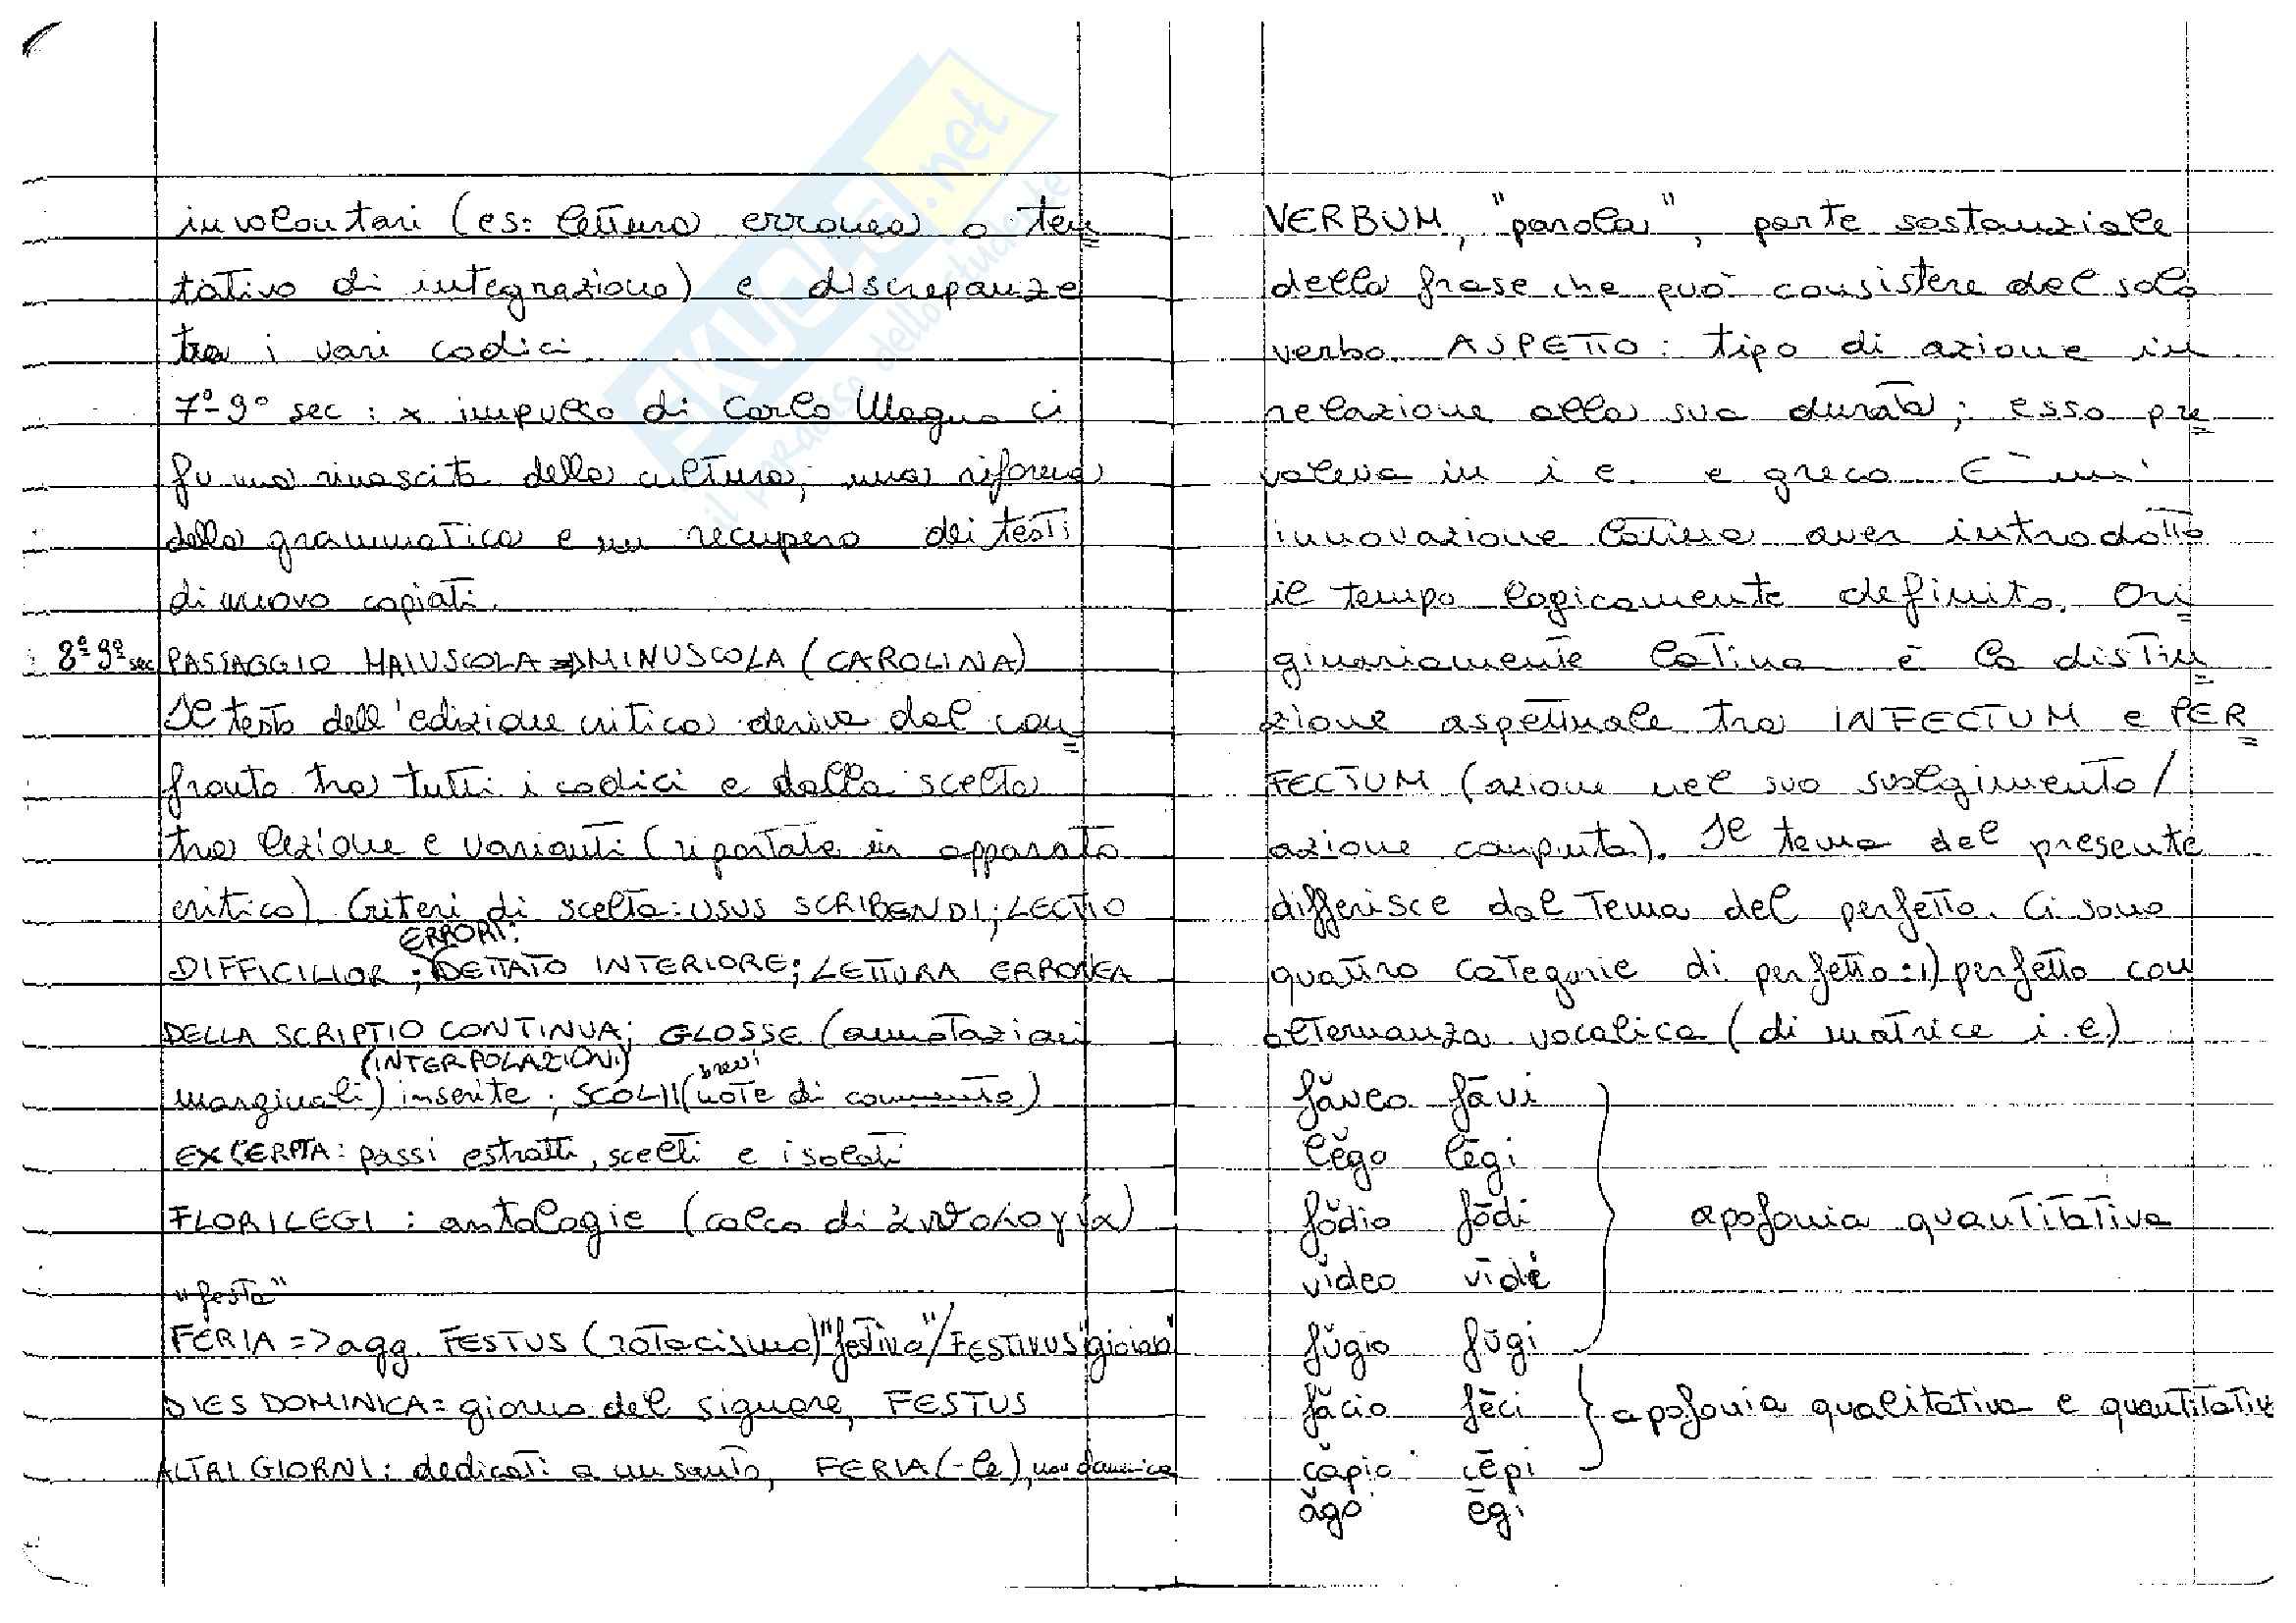 involontari (es: lettura erronea o ten
tativo di integrazione) e discrepanze
tra i vari codici
7°-9° sec : x impulso di Carlo Magno ci
fu una rinascita della cultura, una riforma
della grammatica e un recupero dei testi
di nuovo copiati.
8°-9° sec PASSAGGIO MAIUSCOLA => MINUSCOLA (CAROLINA)
Il testo dell'edizione critica deriva dal con
fronto tra tutti i codici e dalla scelta
tra lezione e varianti (riportate in apparato
critico) Criteri di scelta: USUS SCRIBENDI; LECTIO
ERRORI:
DIFFICILIOR ; DETTATO INTERIORE; LETTURA ERRONEA
DELLA SCRIPTIO CONTINUA; GLOSSE (annotazioni
(INTERPOLAZIONI) brevi
marginali) inserite ; SCOLII (note di commento)
EXCERPTA: passi estratti, scelti e isolati
FLORILEGI : antologie (calco di ἀνθολογία)
"festa"
FERIA => agg. FESTUS (rotacismo) "festivo" / FESTIVUS "gioioso"
DIES DOMINICA = giorno del signore, FESTUS
ALTRI GIORNI: dedicati a un santo, FERIA (-le), non domenica
VERBUM, "parola", parte sostanziale
della frase che può consistere del solo
verbo. ASPETTO : tipo di azione in
relazione alla sua durata; esso pre
valeva in i e. e greco È un'
innovazione latina aver introdotto
il tempo logicamente definito. Ori
ginariamente latina è la distin
zione aspettuale tra INFECTUM e PER
FECTUM (azione nel suo svolgimento/
azione compiuta). Il tema del presente
differisce dal tema del perfetto. Ci sono
quattro categorie di perfetto: 1) perfetto con
alternanza vocalica (di matrice i. e.)
făveo fāvi
lĕgo lēgi
fŏdio fōdi apofonia quantitativa
vĭdeo vīdi
fŭgio fūgi
făcio fēci apofonia qualitativa e quantitativ
căpio cēpi
ăgo ēgi
SKUOLA.net
il paradiso dello studente